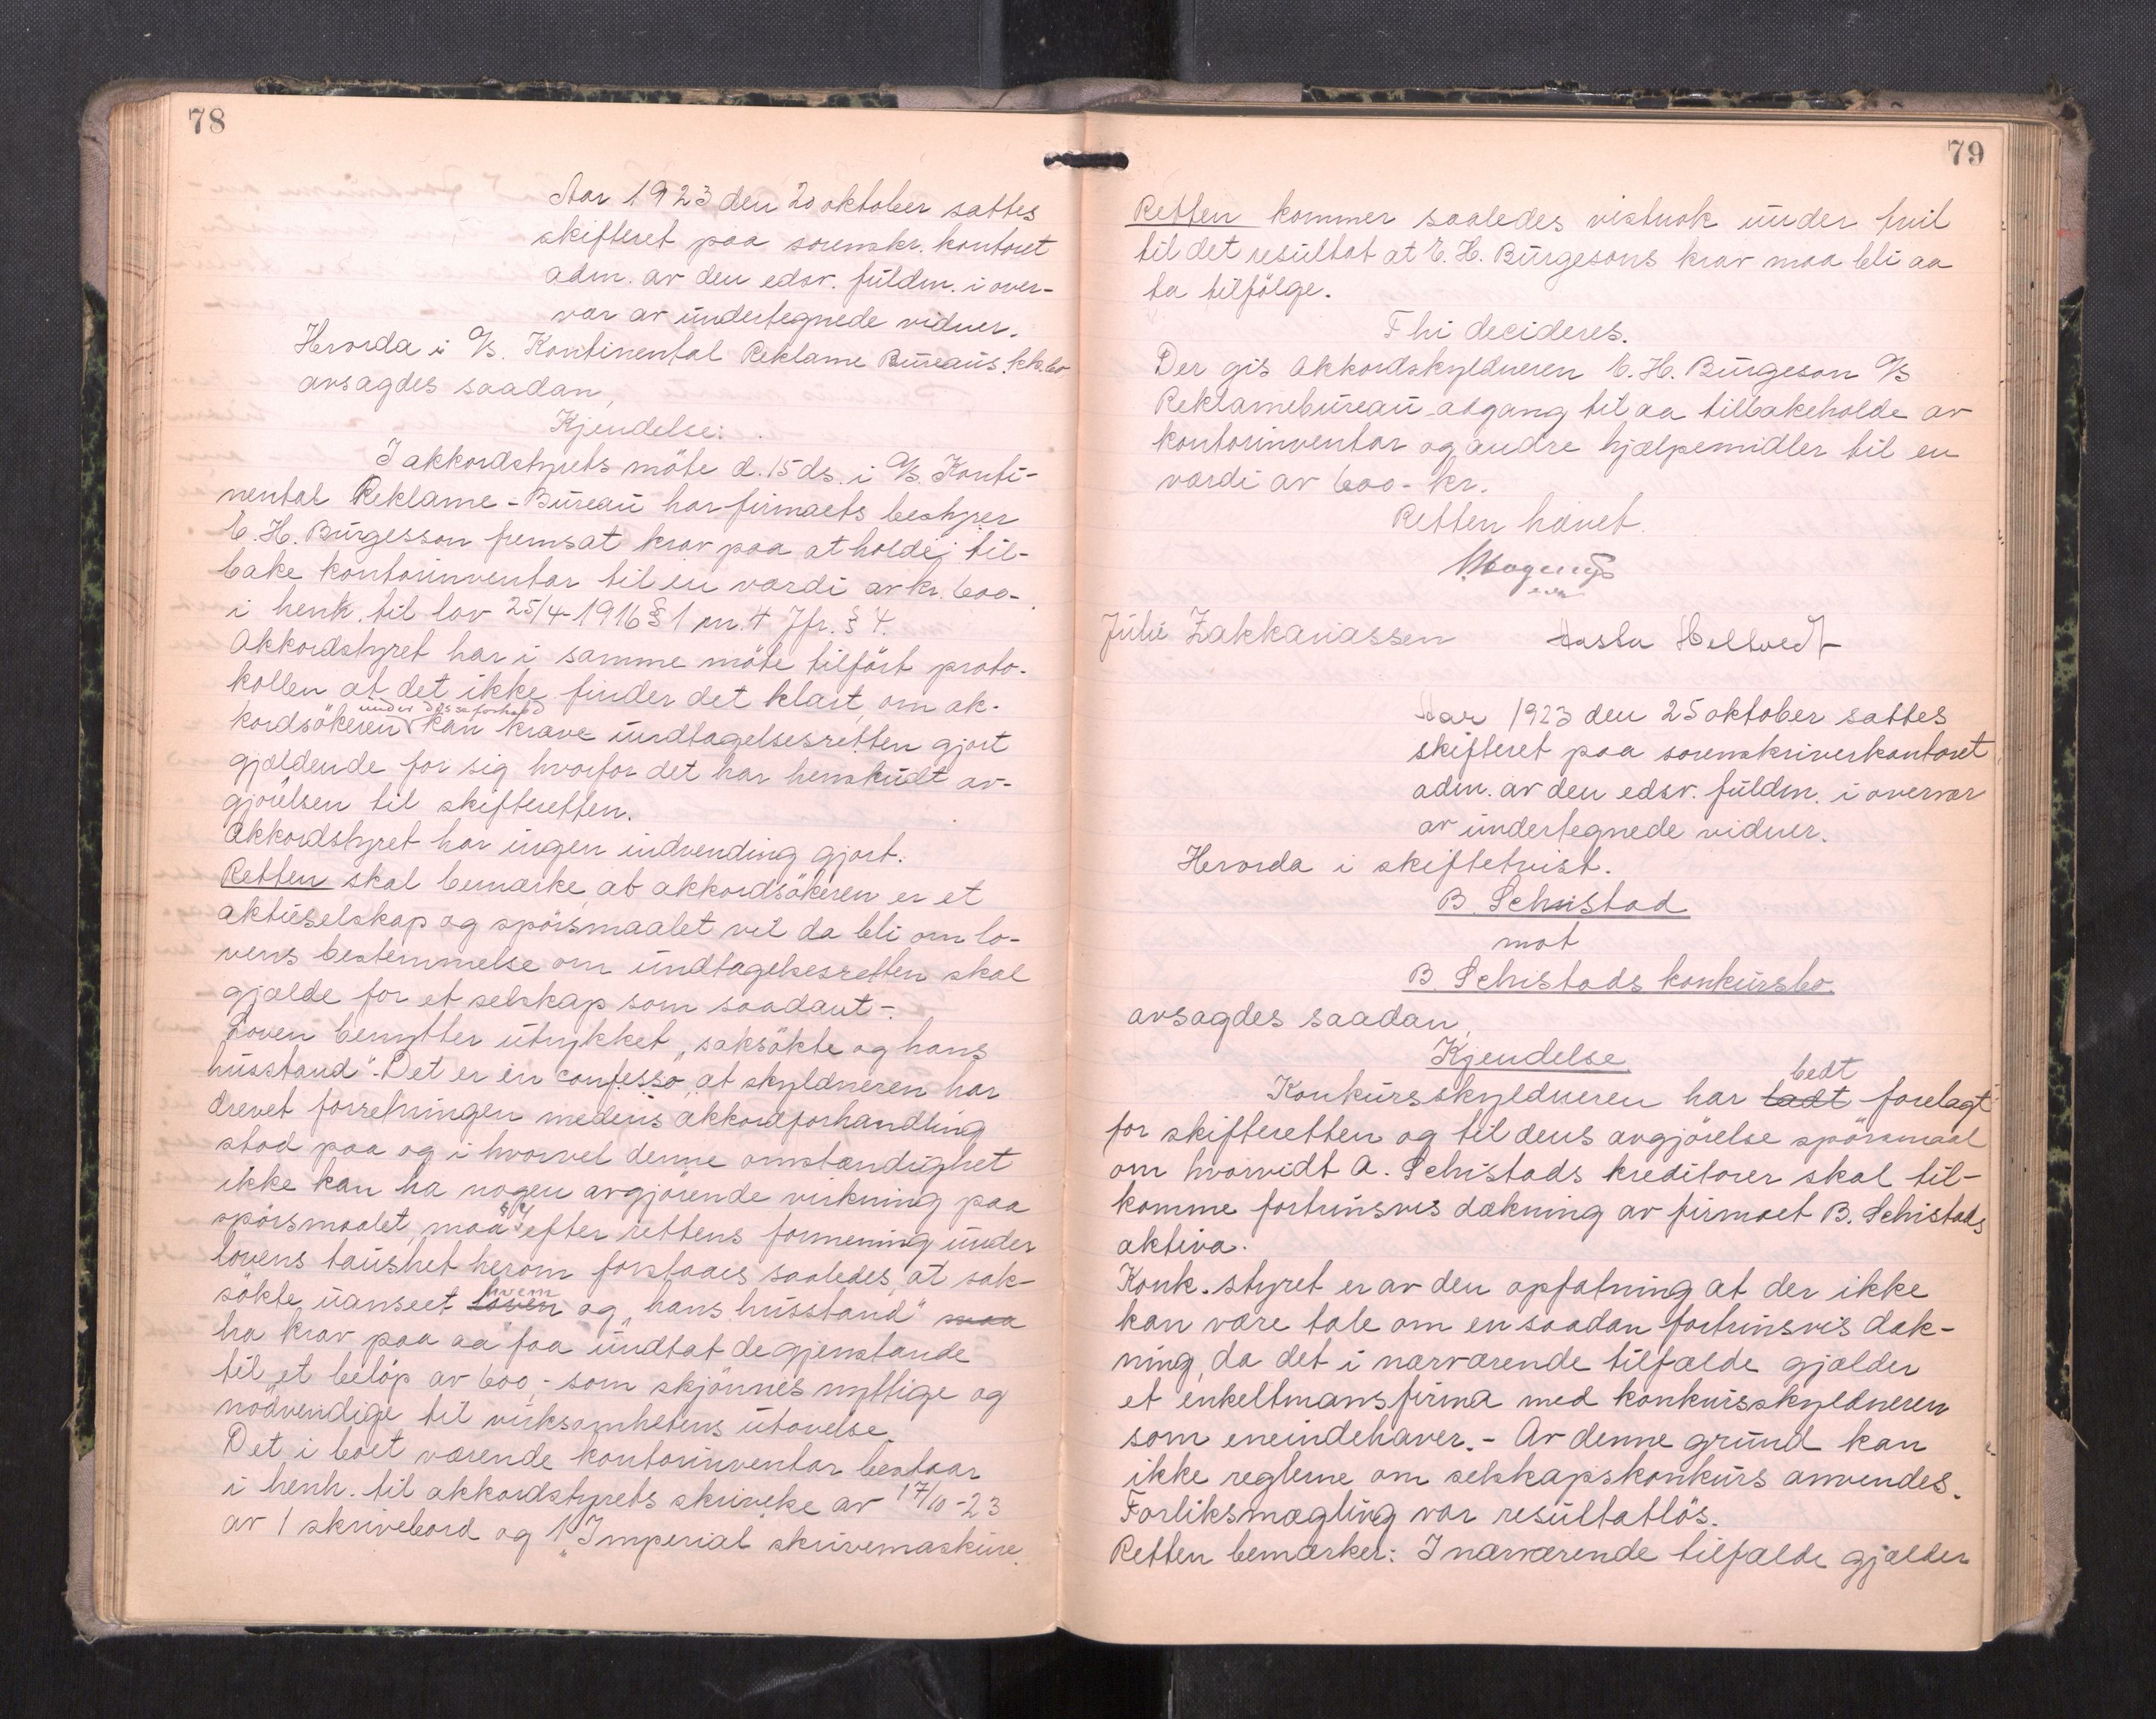 78
Aar 1923 den 20 oktober sattes
skifteret paa sorenskr. kontoret
adm. av den edsv. fuldm. i over-
vær av undertegnede vidner.
Hervorda i A/S. Kontinental Reklame Bureaus kk.bo
avsagdes saadan,
Kjendelse:
I akkordstyrets möte d. 15 ds. i A/S. Konti-
nental Reklame-Bureau har firmaets bestyrer
C. H. Burgesson fremsat krav paa at holde til-
bake kontorinventar til en værdi av kr. 600-
i henh. til lov 25/4-1916 § 1 nr. 4 Jfr. § 4.
Akkordstyret har i samme möte tilfört proto-
kollen at det ikke finder det klart, om ak-
under disse forhold
kordsökeren kan kræve undtagelsesretten gjort
gjældende for sig hvorfor det har henskudt av-
gjörelsen til skifteretten.
Akkordstyret har ingen indvending gjort.
Retten skal bemærke at akkordsökeren er et
aktieselskap og spörsmaalet vil da bli om lo-
vens bestemmelse om undtagelsesretten skal
gjælde for et selskap som saadant-.
Loven benytter utrykket „saksökte og hans
husstand". Det er in confesso at skyldneren har
drevet forretningen medens akkordforhandling
stod paa og i hvorvel denne omstændighet
ikke kan ha nogen avgjörende virkning paa
spörsmaalet, maa efter rettens formening under
lovens taushet herom forstaaes saaledes, at sak-
sökte uanseet loven hvem og „hans husstand" maa
ha krav paa aa faa undtat de gjenstande
til et belöp av 600,- som skjönnes nyttige og
nödvendige til virksomhetens utövelse.
Det i boet værende kontorinventar bestaar
i henh. til akkordstyrets skrivelse av 17/10-23
av 1 skrivebord og 1 „Imperial skrivemaskine.
79
Retten kommer saaledes vistnok under tvil
til det resultat at C. H. Burgesons krav maa bli aa
ta tilfölge.
Thi decideres.
Der gis Akkordskyldneren C. H. Burgeson A/S
Reklamebureau adgang til aa tilbakeholde av
kontorinventar og andre hjælpemidler til en
værdi av 600- kr.
Retten hævet.
Julie Zakkariassen Aasta Heltvedt
Aar 1923 den 25 oktober sattes
skifteret paa sorenskriverkontoret
adm. av den edsv. fuldm. i overvær
av undertegnede vidner.
Hervorda i skiftetvist.
B. Schistad
mot
B. Schistads konkursbo.
avsagdes saadan,
Kjendelse.
bedt
Konkursskyldneren har ladt forelagt
for skifteretten og til dens avgjörelse spörsmaal
om hvorvidt A. Schistads kreditorer skal til-
komme fortrinsvis dækning av firmaet B. Schistads
aktiva.
Konk. styret er av den opfatning at der ikke
kan være tale om en saadan fortrinsvis dæk-
ning, da det i nærværende tilfælde gjælder
et enkeltmansfirma med konkursskyldneren
som eneindehaver.- Av denne grund kan
ikke reglerne om selskapskonkurs anvendes.
Forliksmægling var resultatlös.
Retten bemærker: I nærværende tilfælde gjælder